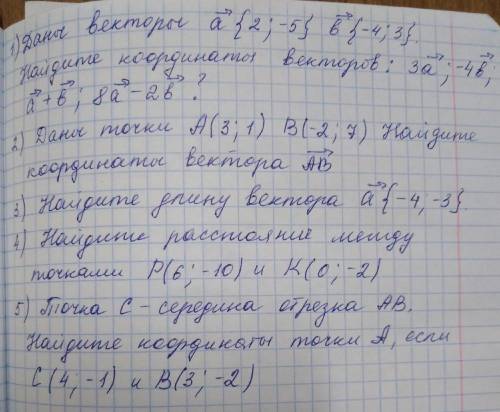 1) Даны векторы a⃗ {2; -5} b⃗ {-4; 3}.
Найдите координаты векторов: 3a⃗; -4b⃗;
a⃗ + b⃗; 8a⃗ - 2b⃗?
2) Даны точки A(3; 1) B(-2; 7) Найдите
координаты вектора A⃗B⃗
3) Найдите длину вектора a⃗ {-4; -3}.
4) Найдите расстояние между
точками P(6; -10) и K(0; -2)
5) Точка C - середина отрезка AB.
Найдите координаты точки A, если
C(4; -1) и B(3; -2)